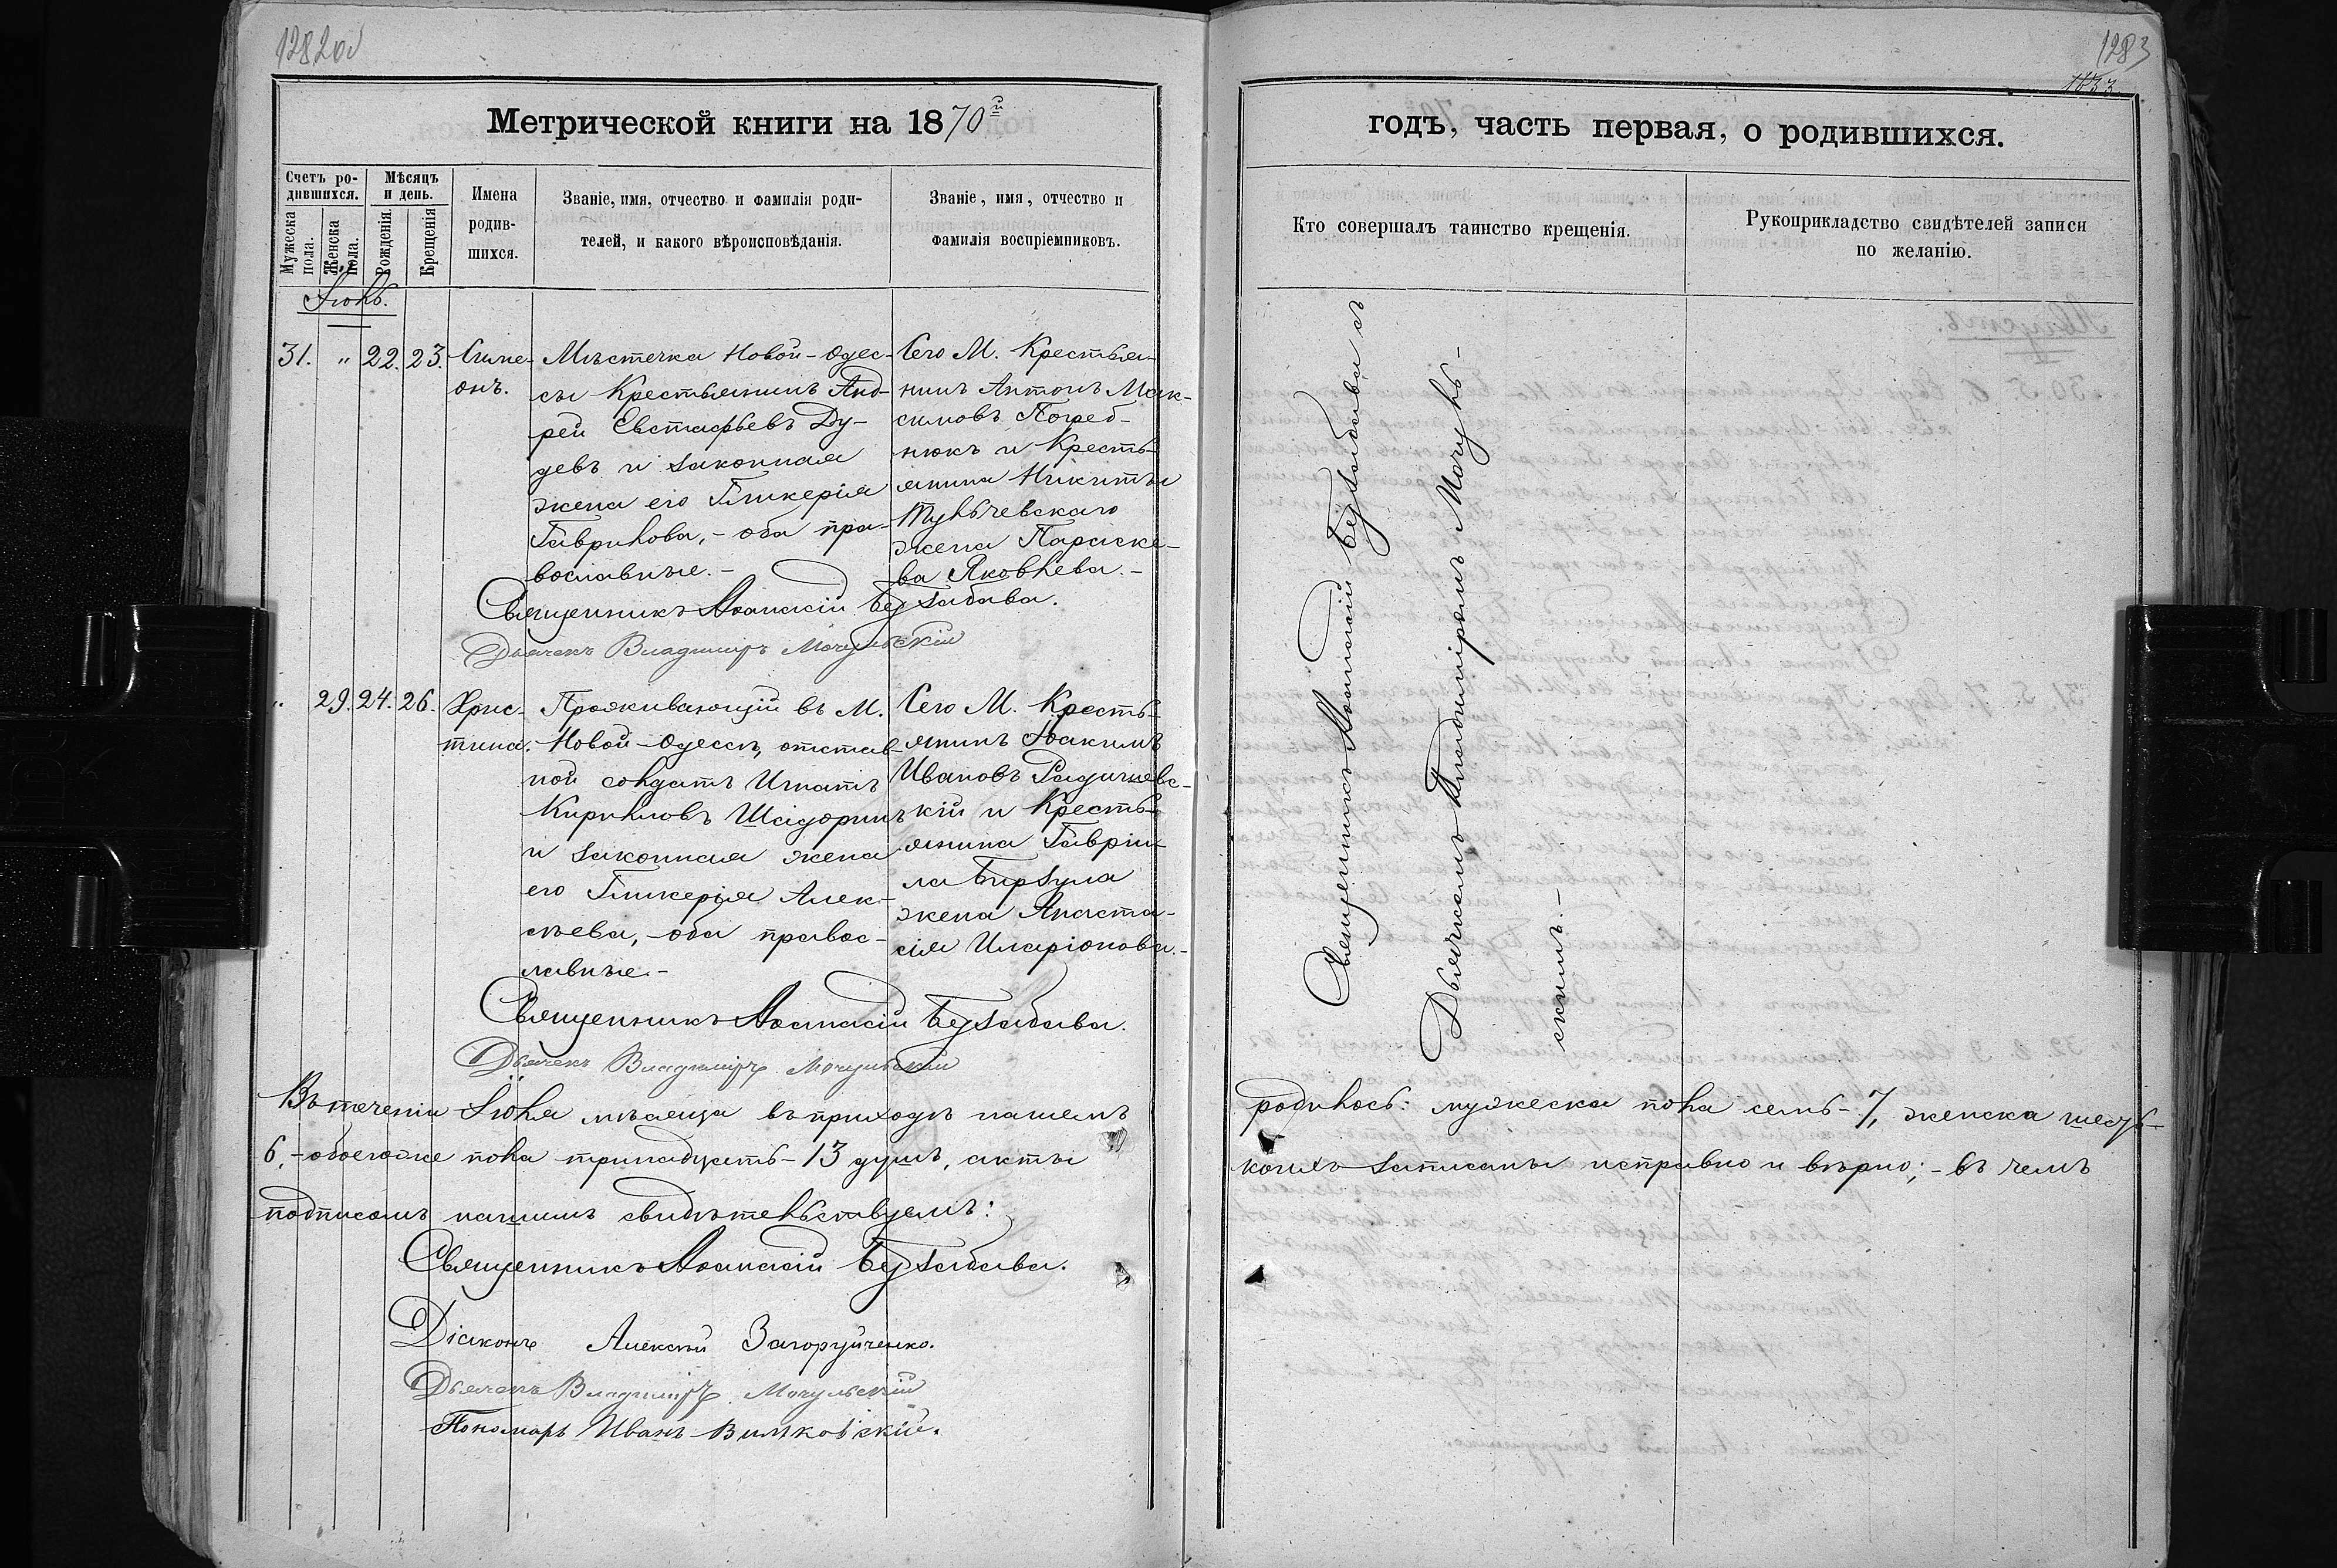 1282об
Метрической книги на 1870й
Счетъ ро-
дившихся.
Мѣсяцъ
и день.
Мужеска
пола.
Женска
пола.
Рожденія.
Крещенія
Имена
родив-
шихся.
Званіе, имя, отчество и фамилія роди-
телей, и какого вѣроисповѣданія.
Званіе, имя, отчество и
фамилія воспріемниковъ.
Іюль.
31. " 22. 23. Симе-
онъ.
Мѣстечка Новой-Одес-
сы Крестьянинъ Анд-
рей Евстафьевъ Ду-
девъ и законная
жена его Гликерія
Гаврилова, - оба пра-
вославные. -
Сего М. Крестья-
нинъ Антонъ Мак-
симовъ Погреб-
нюкъ и Кресть-
янина Никиты
Тульчевскаго
жена Параске-
ва Яковлева. -
Священникъ Аѳанасій Бузабава.
Дьячекъ Владиміръ Мочульскій
" 29. 24. 26. Хрис-
тина.
Проживающій въ М.
Новой-Одессѣ, отстав-
ной солдатъ Игнатъ
Кириловъ
и законная жена
его Гликерія Алек-
сѣева, - оба правос-
лавные. -
Сего М. Кресть-
янинъ Іоакимъ
Ивановъ
кій и Кресть-
янина Гаврі-
ла Бирзула
жена Анаста-
сія Иларіонова. -
Священникъ Аѳанасій Бузабава.
Дьячекъ Владиміръ Мочульскій
Въ теченіи Іюля мѣсяца въ приходѣ нашемъ
6, - обоего же пола тринадцать - 13 душъ, акты
подписомъ нашимъ свидѣтельствуемъ:
Священникъ Аѳанасій Бузабава.
Діаконъ Алексѣй Загоруйченко.
Дьячекъ Владиміръ Мочульскій
Пономарь Иванъ Витковскій.
1283
годъ, часть первая, о родившихся.
Кто совершалъ таинство крещенія.
Рукоприкладство свидѣтелей записи
по желанію.
Священникъ Аѳанасій Бузабава съ
Дьячкомъ Владиміромъ Мочуль-
скимъ. -
родилось: мужеска пола семь - 7, женска шесть -
коихъ записаны исправно и вѣрно; - въ чемъ